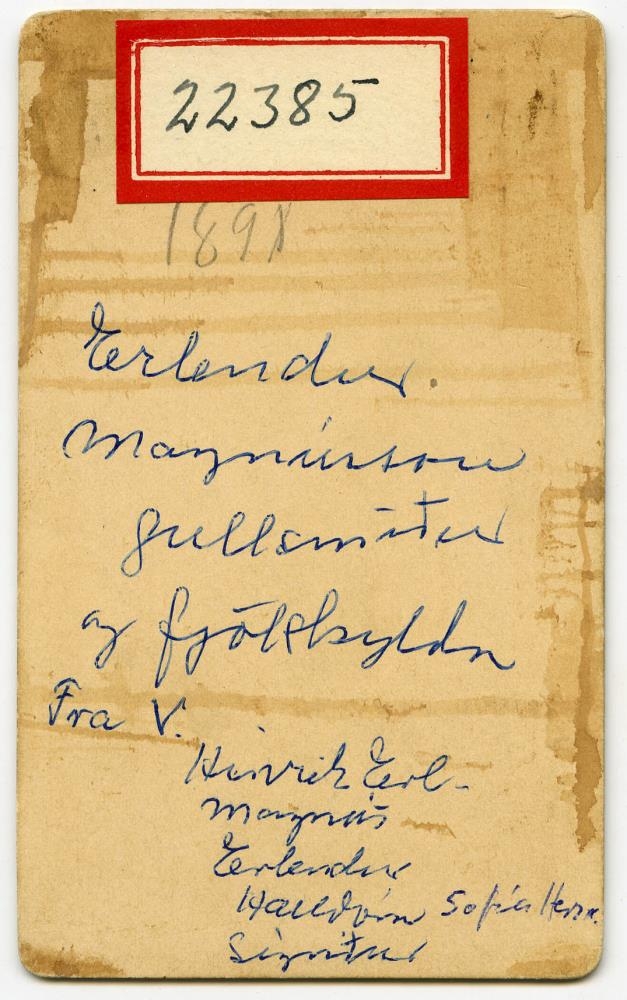 22385
1898
Erlendur
Magnússon
gullsmiður
og fjölskylda
Frá V.
Hinrik Erl-
Magnús
Erlendur
Halldóra Sofía Heinr.
Sigríður